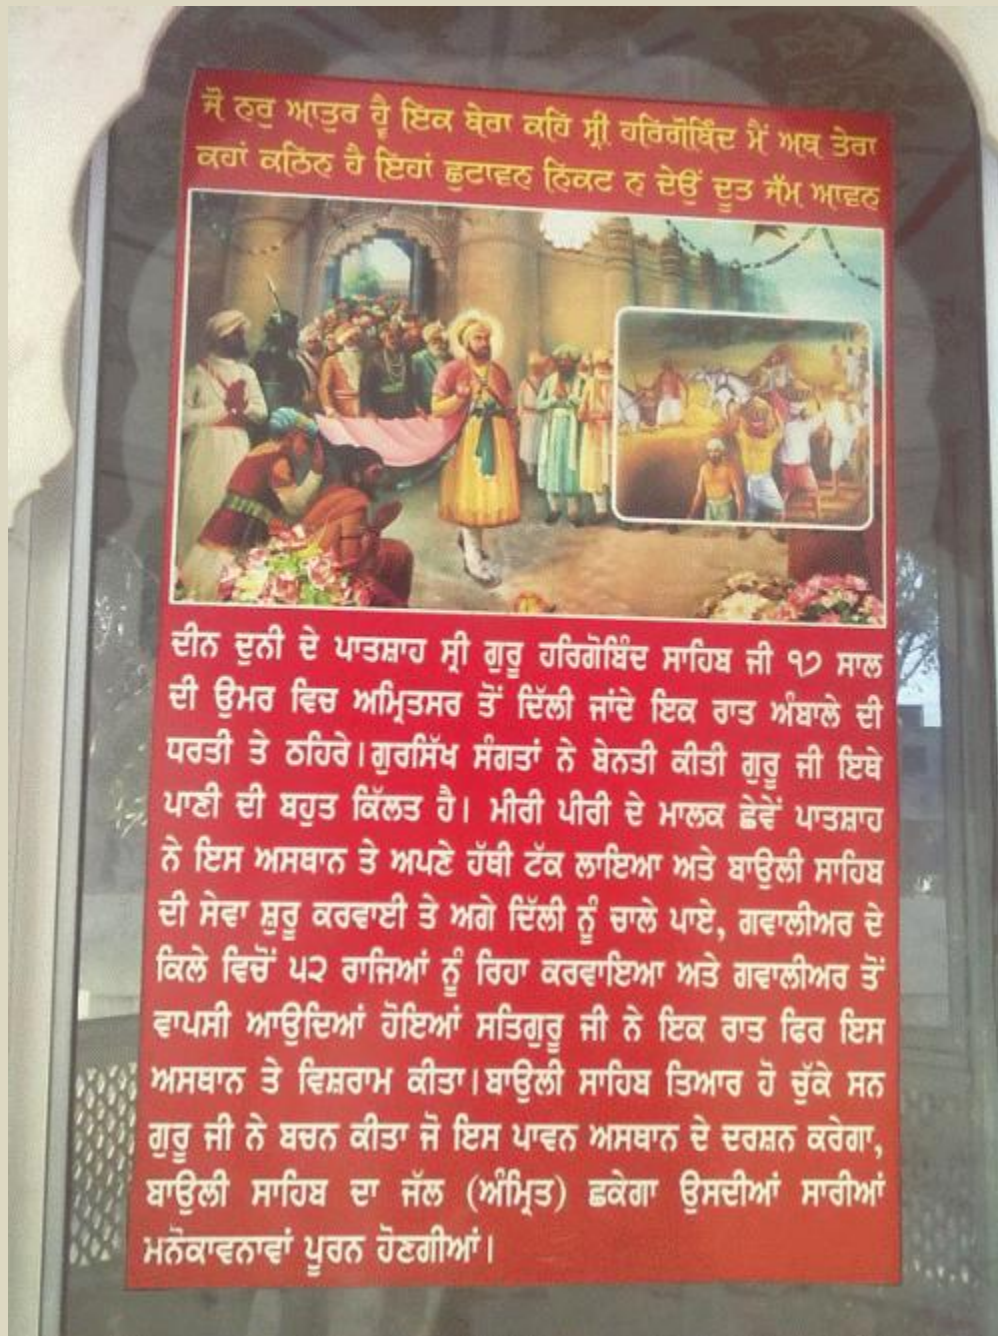 ਜੌ ਨਰੁ ਆਤੁਰ ਹ੍ਵੈ ਇਕ ਬੇਰਾ ਕਹਿ ਸ੍ਰੀ ਹਰਿਗੋਬਿੰਦ ਮੈਂ ਅਬ ਤੇਰਾ
ਕਹਾਂ ਕਠਿਨ ਹੈ ਇਹਾਂ ਛੁਟਾਵਨ ਨਿਕਟ ਨ ਦੇਉਂ ਦੂਤ ਜੱਮ ਆਵਨ
ਦੀਨ ਦੁਨੀ ਦੇ ਪਾਤਸ਼ਾਹ ਸ੍ਰੀ ਗੁਰੂ ਹਰਿਗੋਬਿੰਦ ਸਾਹਿਬ ਜੀ ੧੭ ਸਾਲ
ਦੀ ਉਮਰ ਵਿਚ ਅਮ੍ਰਿਤਸਰ ਤੋਂ ਦਿੱਲੀ ਜਾਂਦੇ ਇਕ ਰਾਤ ਅੰਬਾਲੇ ਦੀ
ਧਰਤੀ ਤੇ ਠਹਿਰੇ।ਗੁਰਸਿੱਖ ਸੰਗਤਾਂ ਨੇ ਬੇਨਤੀ ਕੀਤੀ ਗੁਰੂ ਜੀ ਇਥੇ
ਪਾਣੀ ਦੀ ਬਹੁਤ ਕਿੱਲਤ ਹੈ। ਮੀਰੀ ਪੀਰੀ ਦੇ ਮਾਲਕ ਛੇਵੇਂ ਪਾਤਸ਼ਾਹ
ਨੇ ਇਸ ਅਸਥਾਨ ਤੇ ਅਪਣੇ ਹੱਥੀ ਟੱਕ ਲਾਇਆ ਅਤੇ ਬਾਉਲੀ ਸਾਹਿਬ
ਦੀ ਸੇਵਾ ਸ਼ੁਰੂ ਕਰਵਾਈ ਤੇ ਅਗੇ ਦਿੱਲੀ ਨੂੰ ਚਾਲੇ ਪਾਏ, ਗਵਾਲੀਅਰ ਦੇ
ਕਿਲੇ ਵਿਚੋਂ ੫੨ ਰਾਜਿਆਂ ਨੂੰ ਰਿਹਾ ਕਰਵਾਇਆ ਅਤੇ ਗਵਾਲੀਅਰ ਤੋਂ
ਵਾਪਸੀ ਆਉਦਿਆਂ ਹੋਇਆਂ ਸਤਿਗੁਰੂ ਜੀ ਨੇ ਇਕ ਰਾਤ ਫਿਰ ਇਸ
ਅਸਥਾਨ ਤੇ ਵਿਸ਼ਰਾਮ ਕੀਤਾ।ਬਾਉਲੀ ਸਾਹਿਬ ਤਿਆਰ ਹੋ ਚੁੱਕੇ ਸਨ
ਗੁਰੂ ਜੀ ਨੇ ਬਚਨ ਕੀਤਾ ਜੋ ਇਸ ਪਾਵਨ ਅਸਥਾਨ ਦੇ ਦਰਸ਼ਨ ਕਰੇਗਾ,
ਬਾਉਲੀ ਸਾਹਿਬ ਦਾ ਜੱਲ (ਅੰਮ੍ਰਿਤ) ਛਕੇਗਾ ਉਸਦੀਆਂ ਸਾਰੀਆਂ
ਮਨੋਕਾਵਨਾਵਾਂ ਪੂਰਨ ਹੋਣਗੀਆਂ।